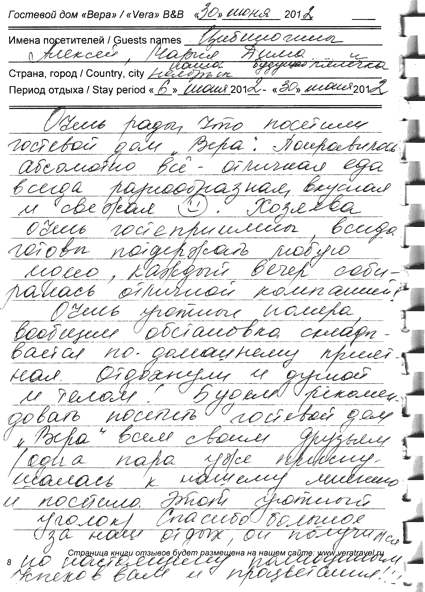 Гостевой дом «Вера» / «Vera» B&B «30» июня 2012
Имена посетителей / Guests names
Алексей, Мария, Дима
наша будущая
Страна, город / Country, city
Период отдыха / Stay period «6» июня 2012 - «30» июня 2012
Очень рады, что посетили
гостевой дом „Вера". Понравилось
абсолютно всё - отличная еда
всегда разнообразная, вкусная
и свежая ☺. Хозяева
очень гостеприимны, всегда
готовы поддержать любую
тему, каждый вечер соби-
ралась отличной компанией!
Очень уютные номера,
вообщем обстановка склады-
вается по-домашнему прият-
ная. Отдохнули и душой
и телом! Будем рекомен-
довать посетить гостевой дом
„Вера" всем своим друзьям
(одна пара уже прислу-
шалась к нашему мнению
и посетила этот уютный
уголок) Спасибо большое
за наш отдых, он получился
Страница книги отзывов будет размещена на нашем сайте: www.veratravel.ru
по настоящему
8
Успехов вам и процветания!!!